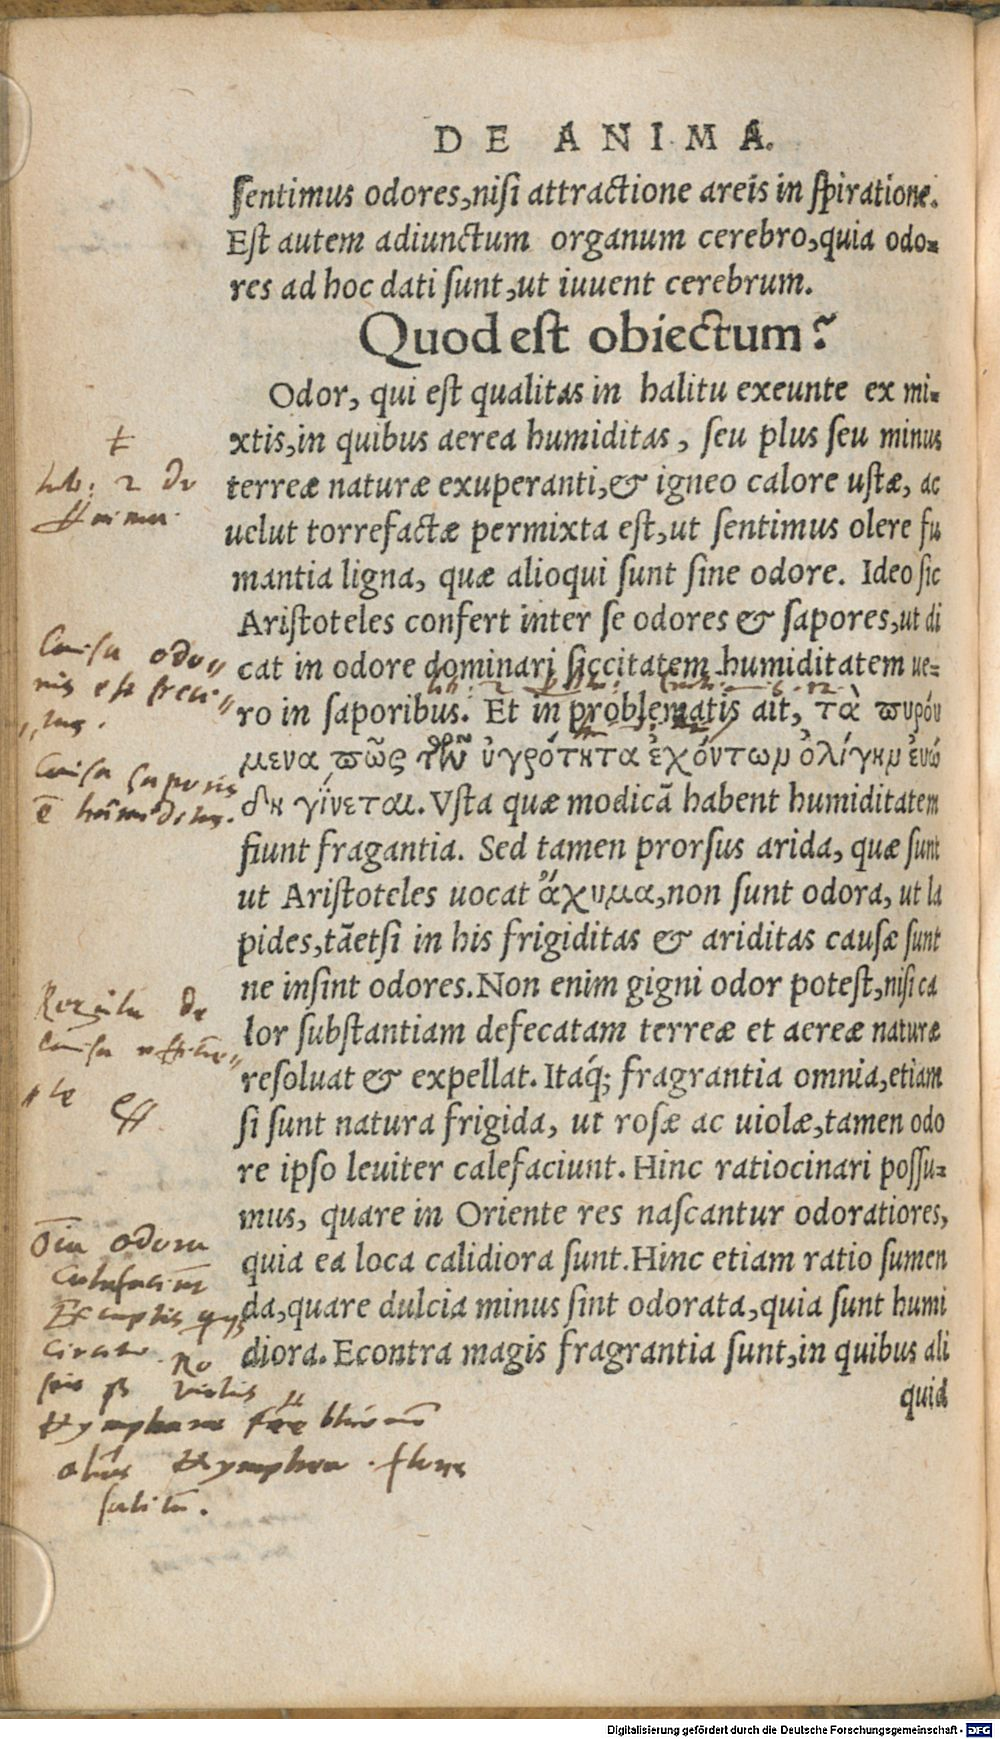 DE ANIMA.
sentimus odores, nisi attractione areis in spiratione.
Est autem adiunctum organum cerebro, quia odo=
res ad hoc dati sunt, ut iuuent cerebrum.
Quod est obiectum?
Odor, qui est qualitas in halitu exeunte ex mi=
xtis, in quibus aerea humiditas, seu plus seu minus
terreæ naturæ exuperanti, & igneo calore ustæ, ac
uelut torrefactæ permixta est, ut sentimus olere fu
mantia ligna, quæ alioqui sunt sine odore. Ideo sic
Aristoteles confert inter se odores & sapores, ut di
cat in odore dominari siccitatem humiditatem ue=
ro in saporibus. Et in problematis ait, τὰ πυρού
μενα πῶς τῶν ὑγρότητα ἐχόντων ὀλίγην ἐυώ
δη γίνεται. Vsta quæ modicã habent humiditatem
fiunt fragantia. Sed tamen prorsus arida, quæ sunt
ut Aristoteles uocat ἄχυμα, non sunt odora, ut la
pides, tãetsi in his frigiditas & ariditas causæ sunt
ne insint odores. Non enim gigni odor potest, nisi ca
lor substantiam defecatam terreæ et aereæ naturæ
resoluat & expellat. Itaq; fragrantia omnia, etiam
si sunt natura frigida, ut rosæ ac uiolæ, tamen odo
re ipso leuiter calefaciunt. Hinc ratiocinari possu=
mus, quare in Oriente res nascantur odoratiores,
quia ea loca calidiora sunt. Hinc etiam ratio sumen
da, quare dulcia minus sint odorata, quia sunt humi
diora. Econtra magis fragrantia sunt, in quibus ali
quid
lib: 2 de
Anima
Causa odo
ris est sicci
tas.
Causa saporis
ē humiditas.
Regula de
causa efficiē
te
Oīa odora
calefaciūt
Exceptis
violis
Nymphaea
Digitalisierung gefördert durch die Deutsche Forschungsgemeinschaft - DFG